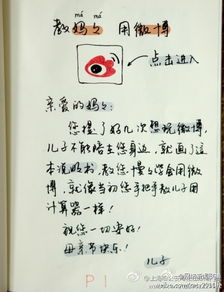 má má
教妈々用微博
点击进入
亲爱的妈々：
您提了好几次想玩微博，
儿子不能陪在您身边，就画了这
本说明书，教您慢々学会用微
博，就像当初您手把手教儿子用
计算器一样！
祝您一切安好！
母亲节快乐！
儿子
P1